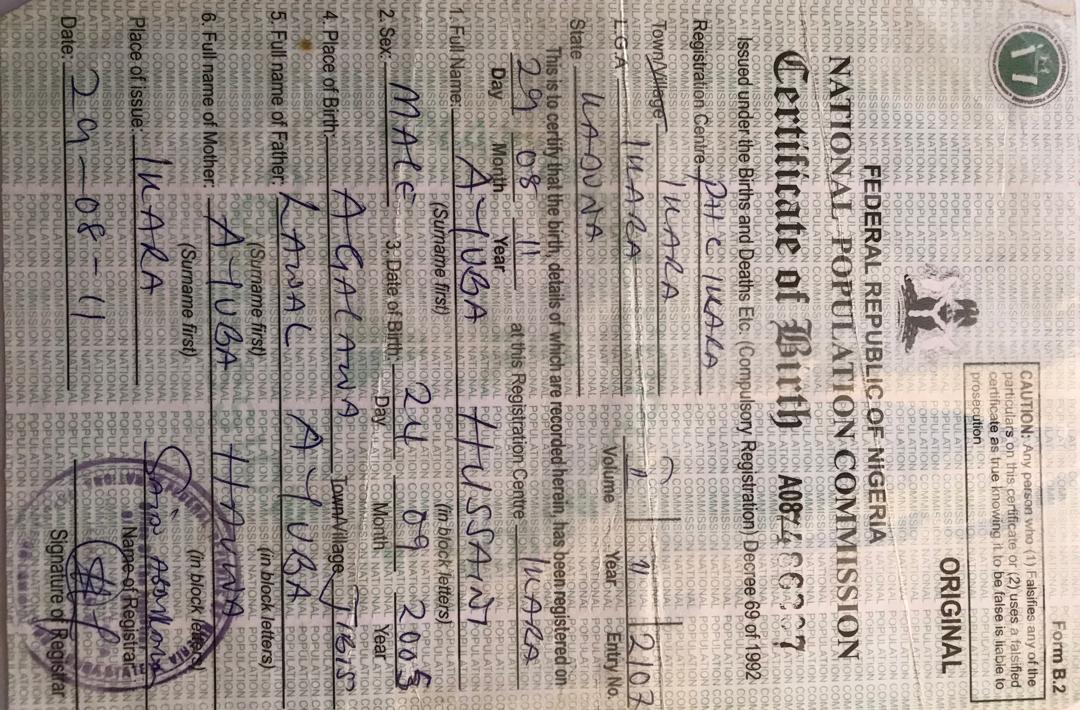 Form B.2
CAUTION: Any person who (1) Falsifies any of the
particulars on this certificate or (2) uses a falsified
certificate as true knowing it to be false is liable to
prosecution
ORIGINAL
FEDERAL REPUBLIC OF NIGERIA
NATIONAL POPULATION COMMISSION
Certificate of Birth
Issued under the Births and Deaths Etc. (Compulsory Registration) Decree 69 of 1992
Registration Centre PHC IKARA
Town/Village IKARA
LGA IKARA 11 2107
Volume Year Entry No.
State KADUNA
This is to certify that the birth, details of which are recorded herein, has been registered on
29 08 11 at this Registration Centre IKARA
Day Month Year
1. Full Name: AYUBA HUSSAINI
(Surname first) (in block letters)
2. Sex: MALE 3. Date of Birth: 24 09 2005
Day Month Year
4. Place of Birth: AGALAWA Town/Village
5. Full name of Father: LAWAL AYUBA
(Surname first) (in block letters)
6. Full name of Mother: AYUBA HAUWA
(Surname first) (in block letters)
Place of issue: IKARA
Name of Registrar
Date: 29-08-11
Signature of Registrar